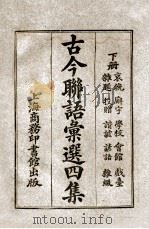 下册
哀輓 廟宇 學校 會館 戲臺
雜題 投贈 諧謔 諺語 雜綴
古今聯語彙選四集
上海商務印書館出版